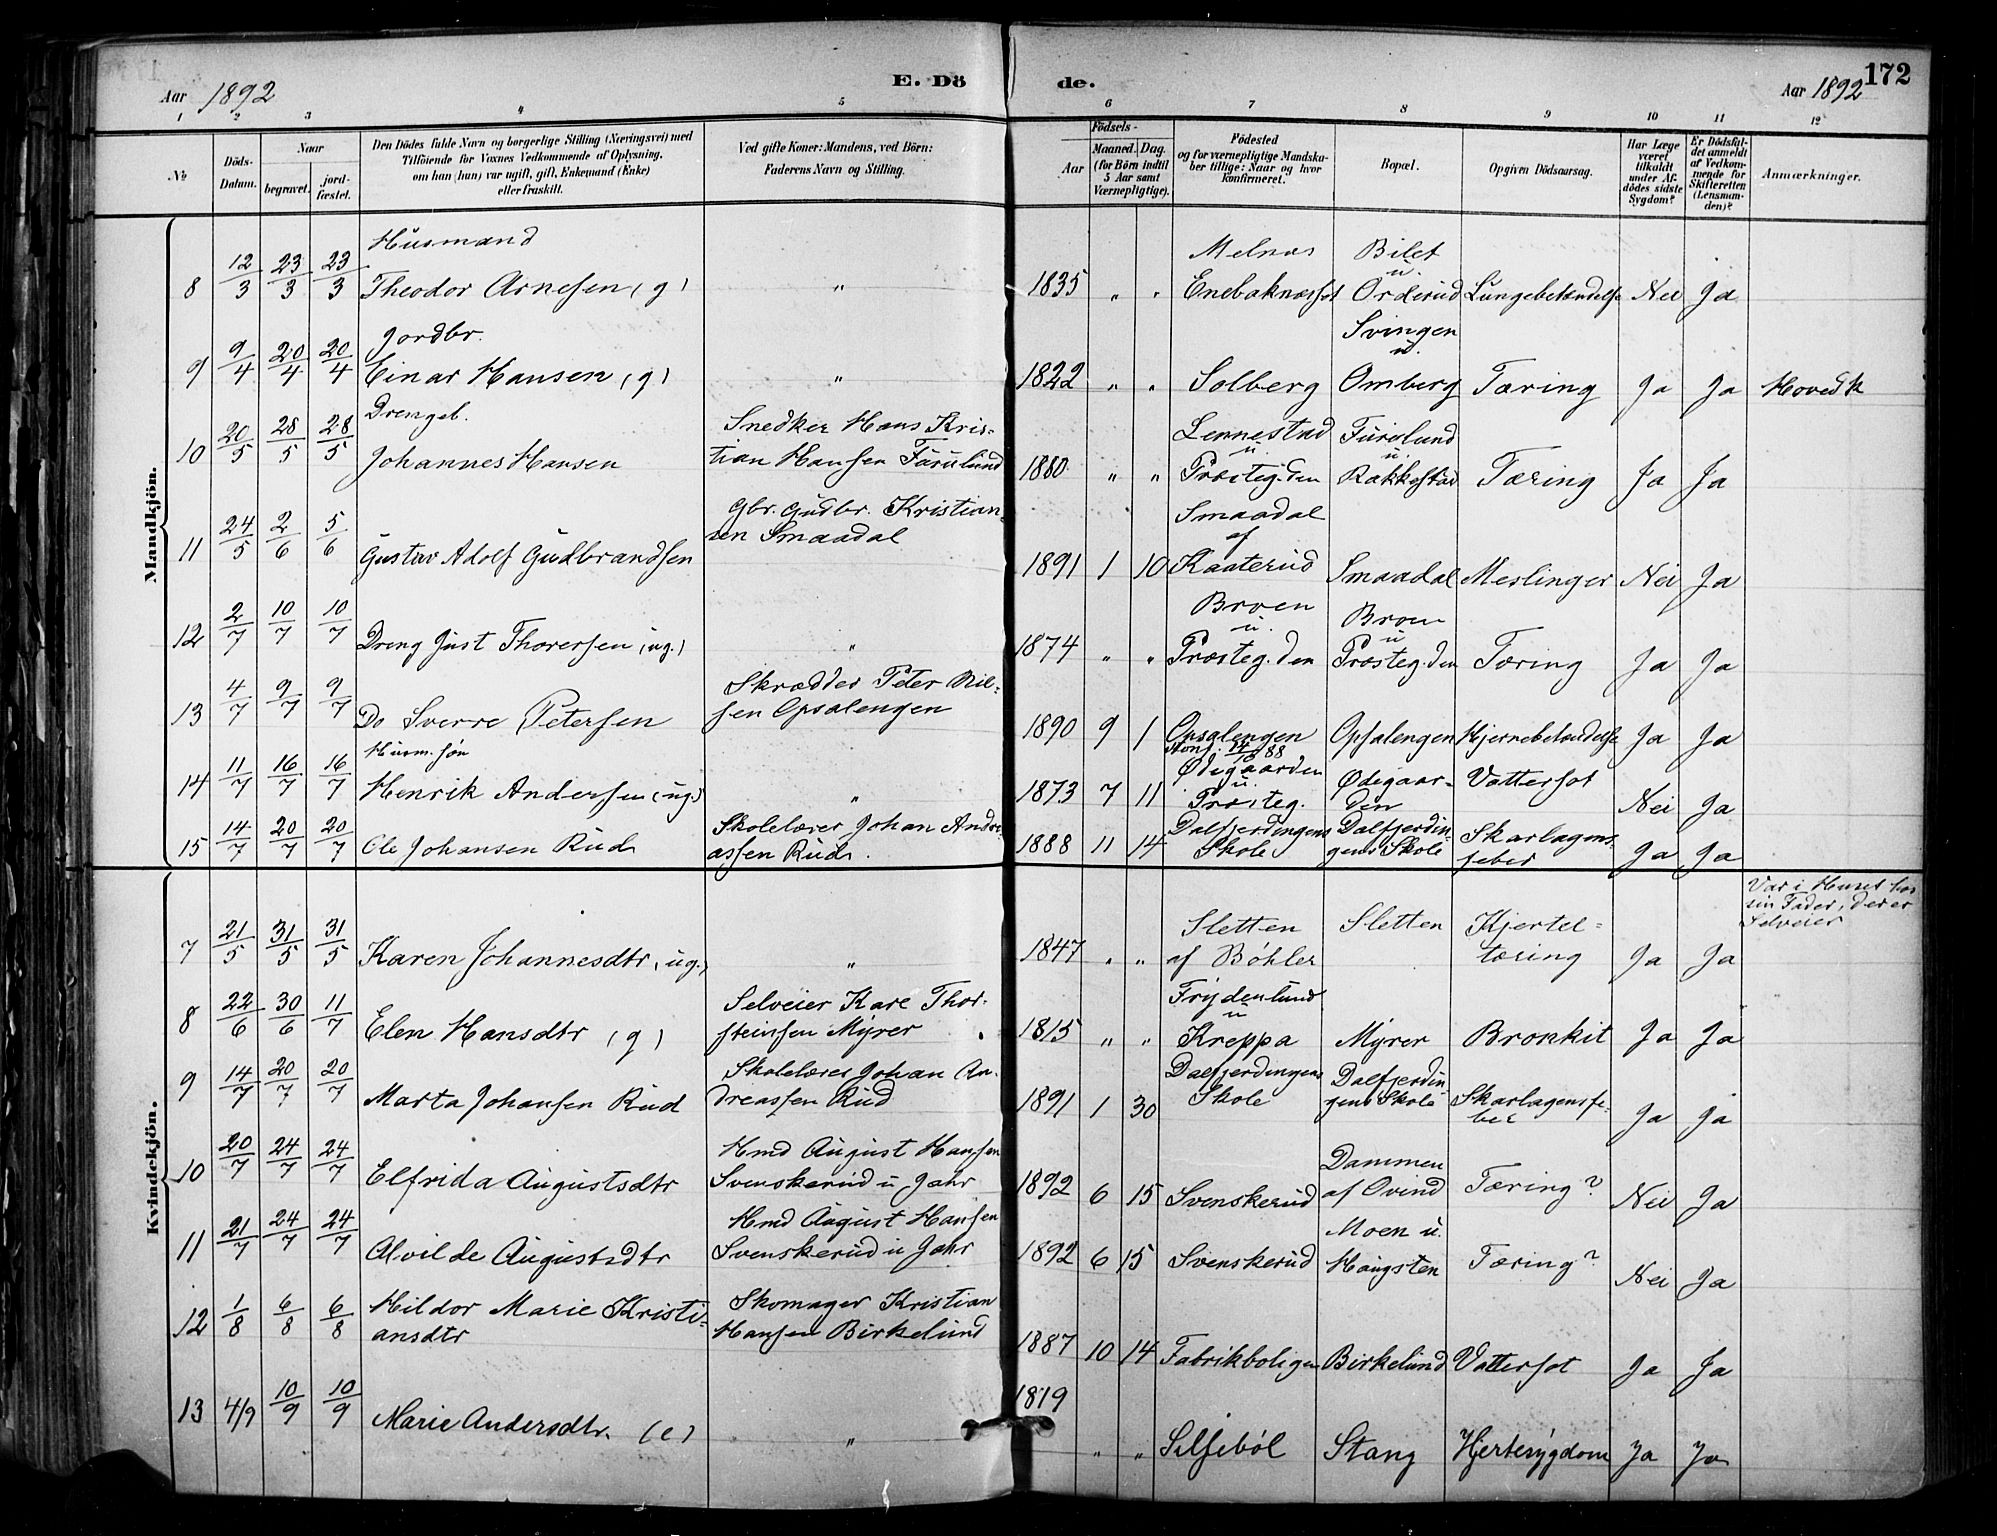 Aar 1892
E. Dö
de.
Aar 1892
172
1 2 3 4 5 6 7 8 9 10 11 12
No
Döds-
Datum.
Naar
begravet.
jord-
fæstet.
Den Dödes fulde Navn og borgerlige Stilling (Næringsvei) med
Tilföiende for Voxnes Vedkommende af Oplysning,
om han (hun) var ugift, gift, Enkemand (Enke)
eller fraskilt.
Ved gifte Koner: Mandens, ved Börn:
Faderens Navn og Stilling.
Födsels-
Aar
Maaned. Dag.
(for Börn indtil
5 Aar samt
Værnepligtige).
Födested
og for værnepligtige Mandska-
ber tillige: Naar og hvor
konfirmeret.
Bopæl.
Opgiven Dödsaarsag.
Har Læge
været
tilkaldt
under Af-
dödes sidste
Sygdom?
Er Dödsfal-
det anmeldt
af Vedkom-
mende for
Skifteretten
(Lensman-
den)?
Anmærkninger.
Mandkjön.
Husmand Melnæs Bilet
u.
8 12/3 23/3 23/3 Theodor Arnesen (g) " 1835 " " Enebaknæsset Orderud Lungebetændelse Nei Ja
Jordbr. Svingen
u.
9 9/4 20/4 20/4 Einar Hansen (g) " 1822 " " Solberg Omberg Tæring Ja Ja Hovedk
Drengeb. Snedker Hans Kris- Lennestad Furulund
u. u.
10 20/5 28/5 28/5 Johannes Hansen tian Hansen Furulund 1880 " " Præsteg.den Rakkestad Tæring Ja Ja
Gbr. Gudbr. Kristian- Smaadal
sen Smaadal af
11 24/5 2/6 5/6 Gustav Adolf Gudbrandsen 1891 1 10 Kaaterud Smaadal Meslinger Nei Ja
Broen Broen
u. u
12 2/7 10/7 10/7 Dreng Just Thoresen (ug.) " 1874 " " Præsteg.den Præsteg.den Tæring Ja Ja
Skrædder Peter Nil-
13 4/7 9/7 9/7 Do Sverre Petersen sen Opsalengen 1890 9 1 Opsalengen Opsalengen Hjernebetændelse Ja Ja
Husm.søn Konf. 14/10 88
Ødegaarden Ødegaar- Vattersot
u.
14 11/7 16/7 16/7 Henrik Andersen (ug.) " 1873 7 11 Præsteg. den Nei Ja
Skolelærer Johan Andre- Dalfjerdingens Dalfjerdin- Skarlagens-
15 14/7 20/7 20/7 Ole Johansen Rud assen Rud. 1888 11 14 Skole gens Skole feber Ja Ja
Kvindekjön.
Var i Huset hos
sin Fader, der er
Selveier
Sletten Sletten Kjertel-
7 21/5 31/5 31/5 Karen Johannesdtr (ug.) " 1847 " " af Bøhler tæring Ja Ja
Selveier Kare Thor- Frydenlund
u
8 22/6 30/6 11/7 Elen Hansdtr (g) steinsen Myrer 1815 " " Kreppa Myrer Bronkit Ja Ja
Skolelærer Johan An- Dalfjerdingens Dalfjerdin-
9 14/7 20/7 20/7 Marta Johansen Rud dreassen Rud 1891 1 30 Skole gens Skole Skarlagensfe-
ber Ja Ja
Hmd August Hansen Dammen
10 20/7 24/7 24/7 Elfrida Augustsdtr Svenskerud u Jahr 1892 6 15 Svenskerud af Ovind Tæring? Nei Ja
Hmd August Hansen Moen u.
11 21/7 24/7 24/7 Alvilde Augustsdtr Svenskerud u Jahr 1892 6 15 Svenskerud Haugsten Tæring? Nei Ja
12 1/8 6/8 6/8 Hildor Marie Kristi- Skomager Kristian
ansdtr Hansen Birkelund 1887 10 14 Fabrikboligen Birkelund Vattersot Ja Ja
13 4/9 10/9 10/9 Marie Andersdtr. (e) " 1819 " " Silsebøl Stang Hjertesygdom Ja Ja